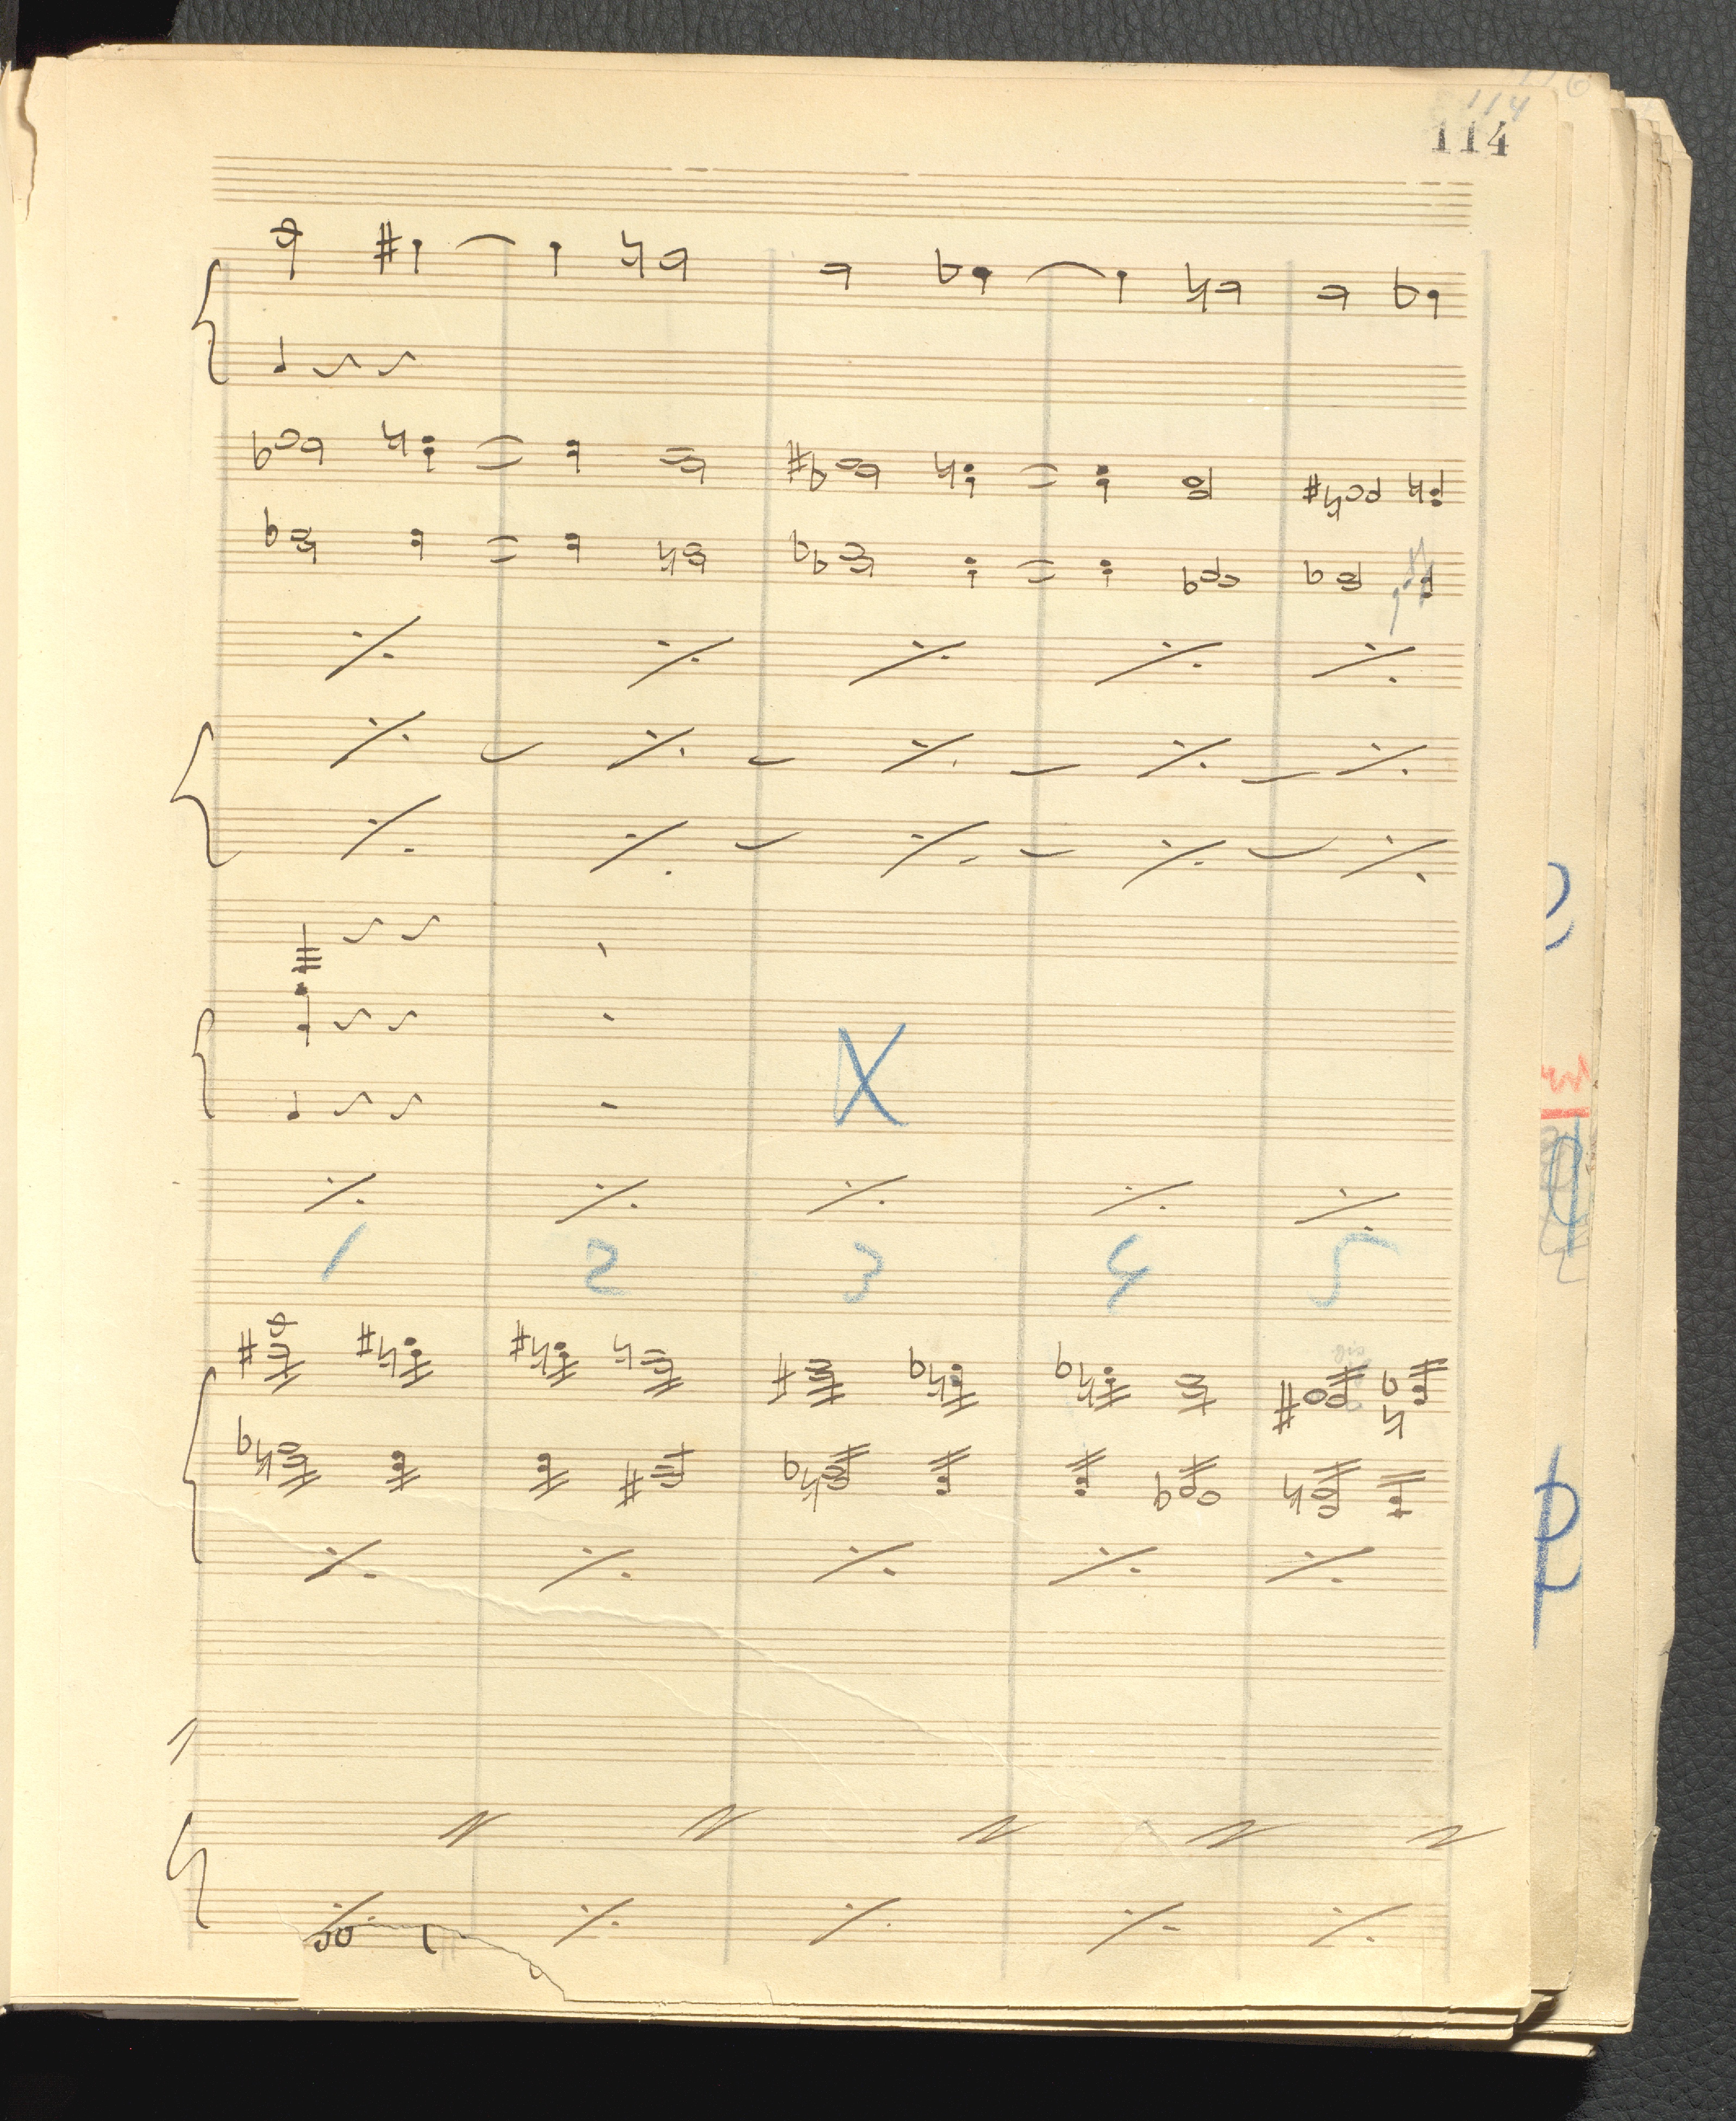 114
114
X
1 2 3 4 5